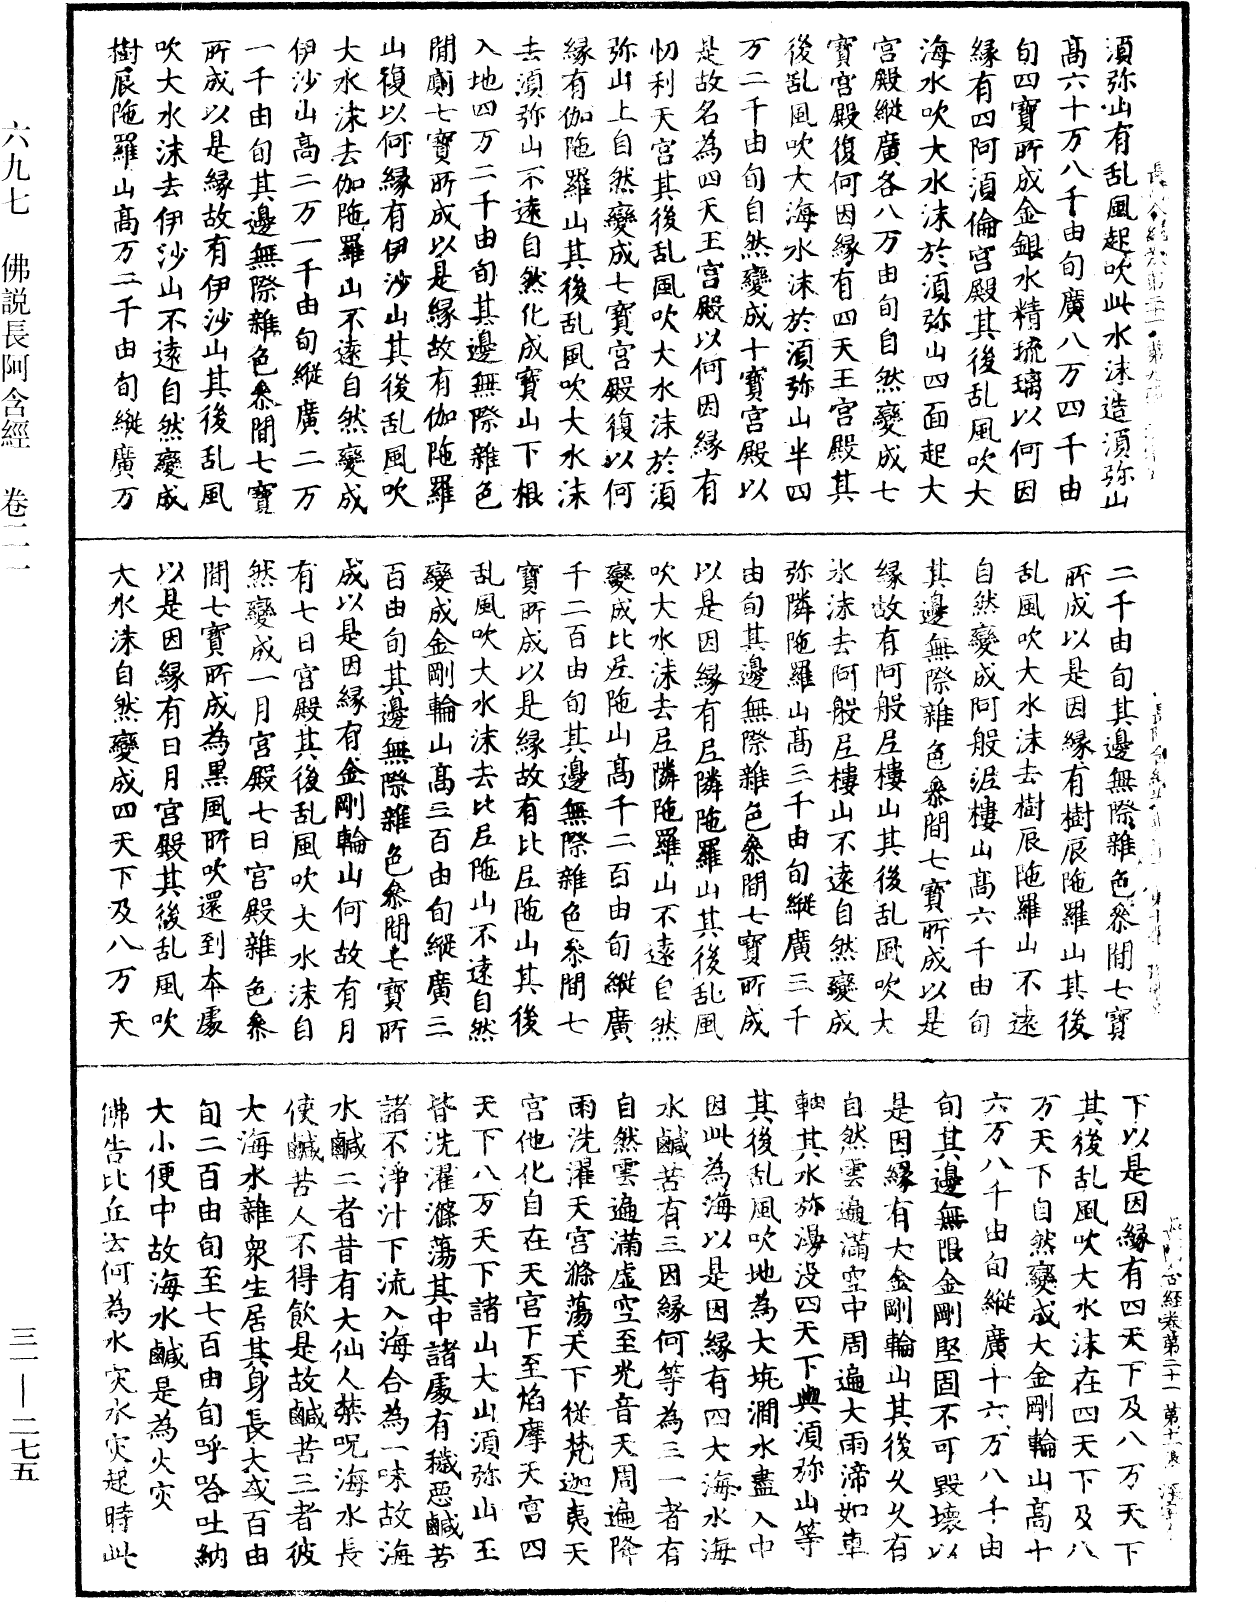 六九七　佛説長阿含經　卷二一
三一—二七五
須弥山有乱風起吹此水沫造須弥山
高六十万八千由旬廣八万四千由
旬四寶所成金銀水精琉璃以何因
緣有四阿須倫宮殿其後乱風吹大
海水吹大水沫於須弥山四面起大
宮殿縱廣各八万由旬自然變成七
寶宮殿復何因緣有四天王宮殿其
後乱風吹大海水沫於須弥山半四
万二千由旬自然變成七寶宮殿以
是故名為四天王宮殿以何因緣有
忉利天宮其後乱風吹大水沫於須
弥山上自然變成七寶宮殿復以何
緣有伽陁羅山其後乱風吹大水沫
去須弥山不遠自然化成寶山下根
入地四万二千由旬其邊無際雜色
間廁七寶所成以是緣故有伽陁羅
山復以何緣有伊沙山其後乱風吹
大水沫去伽陁羅山不遠自然變成
伊沙山高二万一千由旬縱廣二万
一千由旬其邊無際雜色叅間七寶
所成以是緣故有伊沙山其後乱風
吹大水沫去伊沙山不遠自然變成
樹辰陁羅山高万二千由旬縱廣万
二千由旬其邊無際雜色叅間七寶
所成以是因緣有樹辰陁羅山其後
乱風吹大水沫去樹辰陁羅山不遠
自然變成阿般泥樓山高六千由旬
其邊無際雜色叅間七寶所成以是
緣故有阿般尼樓山其後乱風吹大
水沫去阿般尼樓山不遠自然變成
弥隣陁羅山高三千由旬縱廣三千
由旬其邊無際雜色叅間七寶所成
以是因緣有尼隣陁羅山其後乱風
吹大水沫去尼隣陁羅山不遠自然
變成比尼陁山高千二百由旬縱廣
千二百由旬其邊無際雜色叅間七
寶所成以是緣故有比尼陁山其後
乱風吹大水沫去比尼陁山不遠自然
變成金剛輪山高三百由旬縱廣三
百由旬其邊無際雜色叅間七寶所
成以是因緣有金剛輪山何故有月
有七日宮殿其後乱風吹大水沫自
然變成一月宮殿七日宮殿雜色叅
間七寶所成為黒風所吹還到本處
以是因緣有日月宮殿其後乱風吹
大水沫自然變成四天下及八万天
下以是因緣有四天下及八万天下
其後乱風吹大水沫在四天下及八
万天下自然變成大金剛輪山高十
六万八千由旬縱廣十六万八千由
旬其邊無限金剛堅固不可毀壞以
是因緣有大金剛輪山其後久久有
自然雲遍滿空中周遍大雨渧如車
軸其水弥漫没四天下與須弥山等
其後乱風吹地為大坑澗水盡入中
因此為海以是因緣有四大海水海
水鹹苦有三因緣何等為三一者有
自然雲遍滿虛空至光音天周遍降
雨洗濯天宮滌蕩天下從梵迦夷天
宮他化自在天宮下至焰摩天宮四
天下八万天下諸山大山須弥山王
皆洗濯滌蕩其中諸處有穢惡鹹苦
諸不淨汁下流入海合為一味故海
水鹹二者昔有大仙人禁呪海水長
使鹹苦人不得飲是故鹹苦三者彼
大海水雜衆生居其身長大或百由
旬二百由旬至七百由旬呼㗱吐納
大小便中故海水鹹是為火灾
佛告比丘云何為水灾水灾起時此